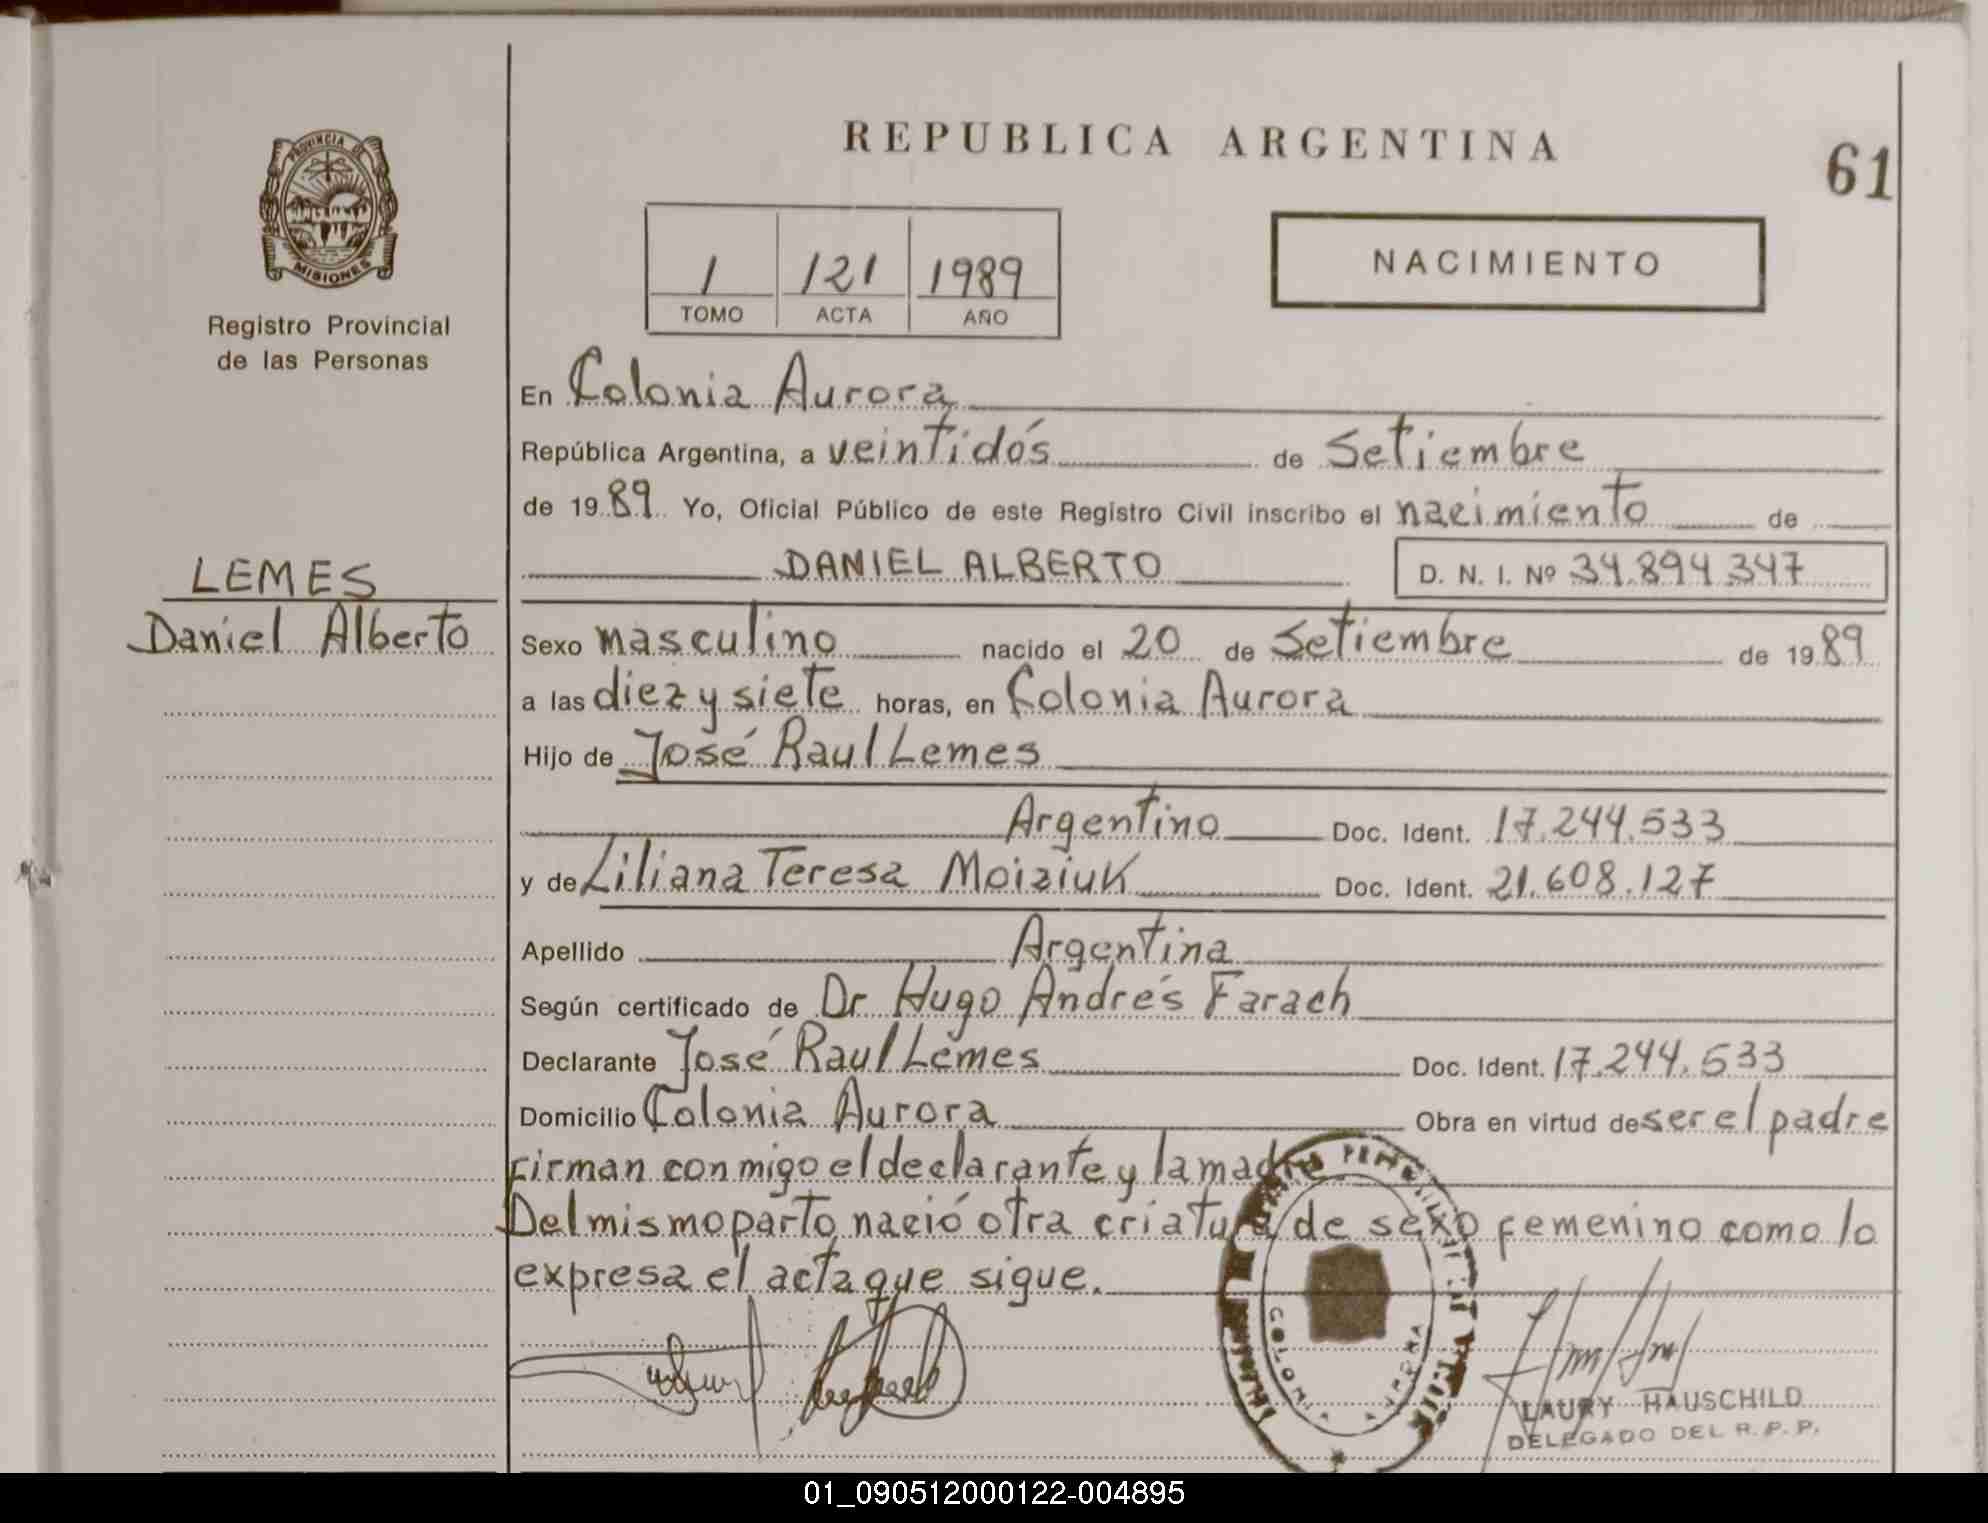 REPUBLICA ARGENTINA
61
PROVINCIA DE
MISIONES
Registro Provincial
de las Personas
1 121 1989
TOMO ACTA AÑO
NACIMIENTO
En Colonia Aurora
República Argentina, a veintidós de Setiembre
de 1989 Yo, Oficial Público de este Registro Civil inscribo el nacimiento de
DANIEL ALBERTO D. N. I. Nº 34.894.347
LEMES
Daniel Alberto
Sexo masculino nacido el 20 de Setiembre de 1989
a las diez y siete horas, en Colonia Aurora
Hijo de José Raul Lemes
Argentino Doc. Ident. 17.244.533
y de Liliana Teresa Moiziuk Doc. Ident. 21.608.127
Apellido Argentina
Según certificado de Dr Hugo Andrés Farach
Declarante José Raul Lemes Doc. Ident. 17.244.533
Domicilio Colonia Aurora Obra en virtud de ser el padre
firman conmigo el declarante y la madre
Del mismo parto nació otra criatura de sexo femenino como lo
expresa el acta que sigue.
COLONIA AURORA
LAURY HAUSCHILD
DELEGADO DEL R. P. P.
01_090512000122-004895